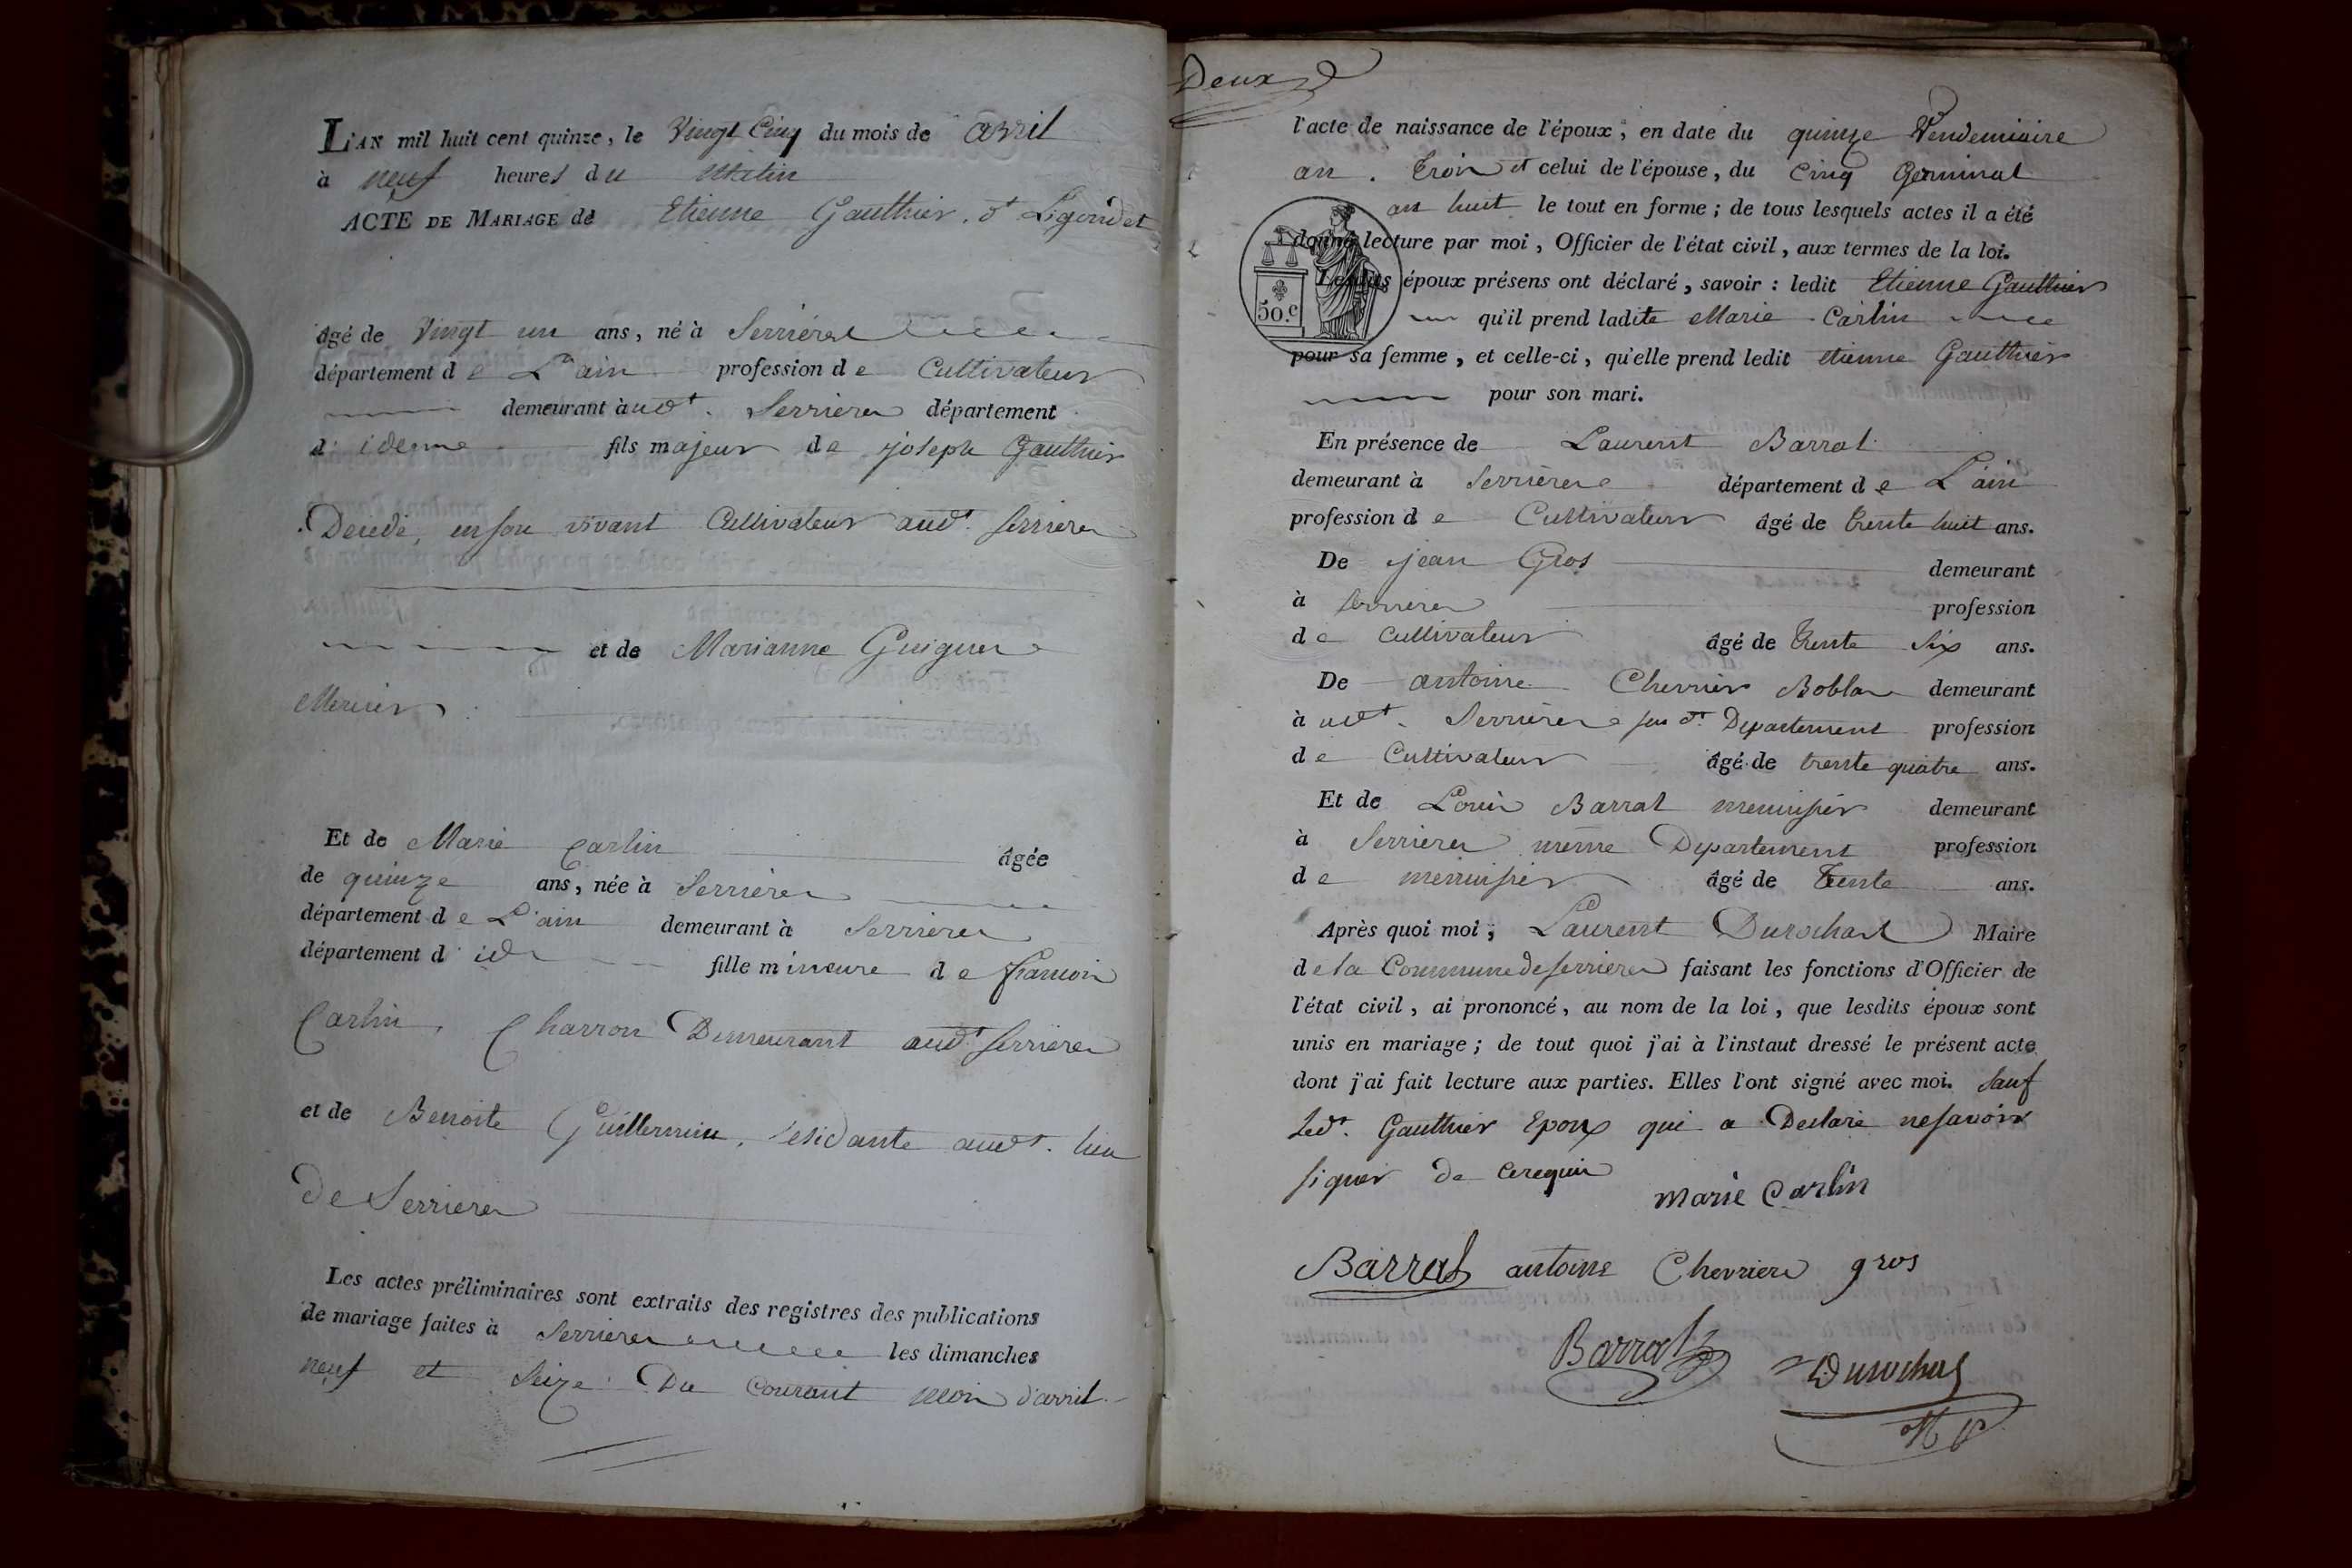 L'AN mil huit cent quinze, le Vingt Cinq du mois de avril
à neuf heures du Matin
ACTE DE MARIAGE de Etienne Gauthier. dt Ligondet
âgé de Vingt un ans, né à Serrieres
département de L'ain profession de Cultivateur
demeurant à udt. Serrieres département
d'idem fils majeur de joseph Gauthier
Decedé, en son vivant Cultivateur audt. Serrieres
et de Marianne Guigue
Mercier
Et de Marie Carlin âgée
de quinze ans, née à Serrieres
département de L'ain demeurant à Serrieres
département d'id fille mineure de francois
Carlin, Charron Demeurant audt Serrieres
et de Benoite Guillermin, residante audt. lieu
De Serrieres
Les actes préliminaires sont extraits des registres des publications
de mariage faites à Serrieres les dimanches
neuf et Seize Du Courant mois d'avril.
Deux
l'acte de naissance de l'époux, en date du quinze Vendemiaire
an. trois et celui de l'épouse, du Cinq Germinal
an huit le tout en forme ; de tous lesquels actes il a été
donné lecture par moi, Officier de l'état civil, aux termes de la loi.
Lesdits époux présens ont déclaré, savoir : ledit Etienne Gauthier
50.c
qu'il prend ladite Marie Carlin
pour sa femme, et celle-ci, qu'elle prend ledit etienne Gauthier
pour son mari.
En présence de Laurent Barral
demeurant à Serrieres département de L'ain
profession de Cultivateur âgé de trente huit ans.
De jean Gros demeurant
à Serrieres profession
de Cultivateur âgé de trente Six ans.
De antoine Chevrier demeurant
à udt. Serrieres susdt. Departement profession
de Cultivateur âgé de trente quatre ans.
Et de Louis Barral menuisier demeurant
à Serrieres même Departement profession
de menuisier âgé de Trente ans.
Après quoi moi, Laurent Durochat Maire
de la Commune de Serrieres faisant les fonctions d'Officier de
l'état civil, ai prononcé, au nom de la loi, que lesdits époux sont
unis en mariage ; de tout quoi j'ai à l'instaut dressé le présent acte
dont j'ai fait lecture aux parties. Elles l'ont signé avec moi. Sauf
Ledt. Gauthier Epoux qui a Declaré ne savoir
signer de ce requis
marie Carlin
Barral antoine Chevrier gros
Barral Durochat